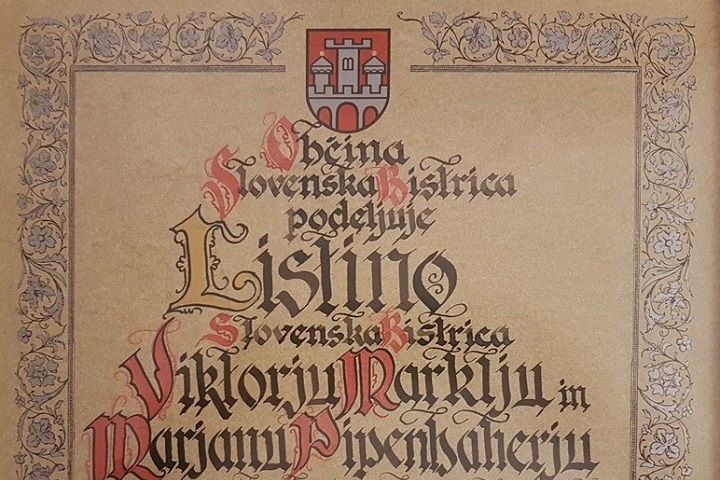 Občina
Slovenska Bistrica
podeljuje
Listino
Slovenska Bistrica
Viktorju Marklju in
Marjanu Pipenbaherju